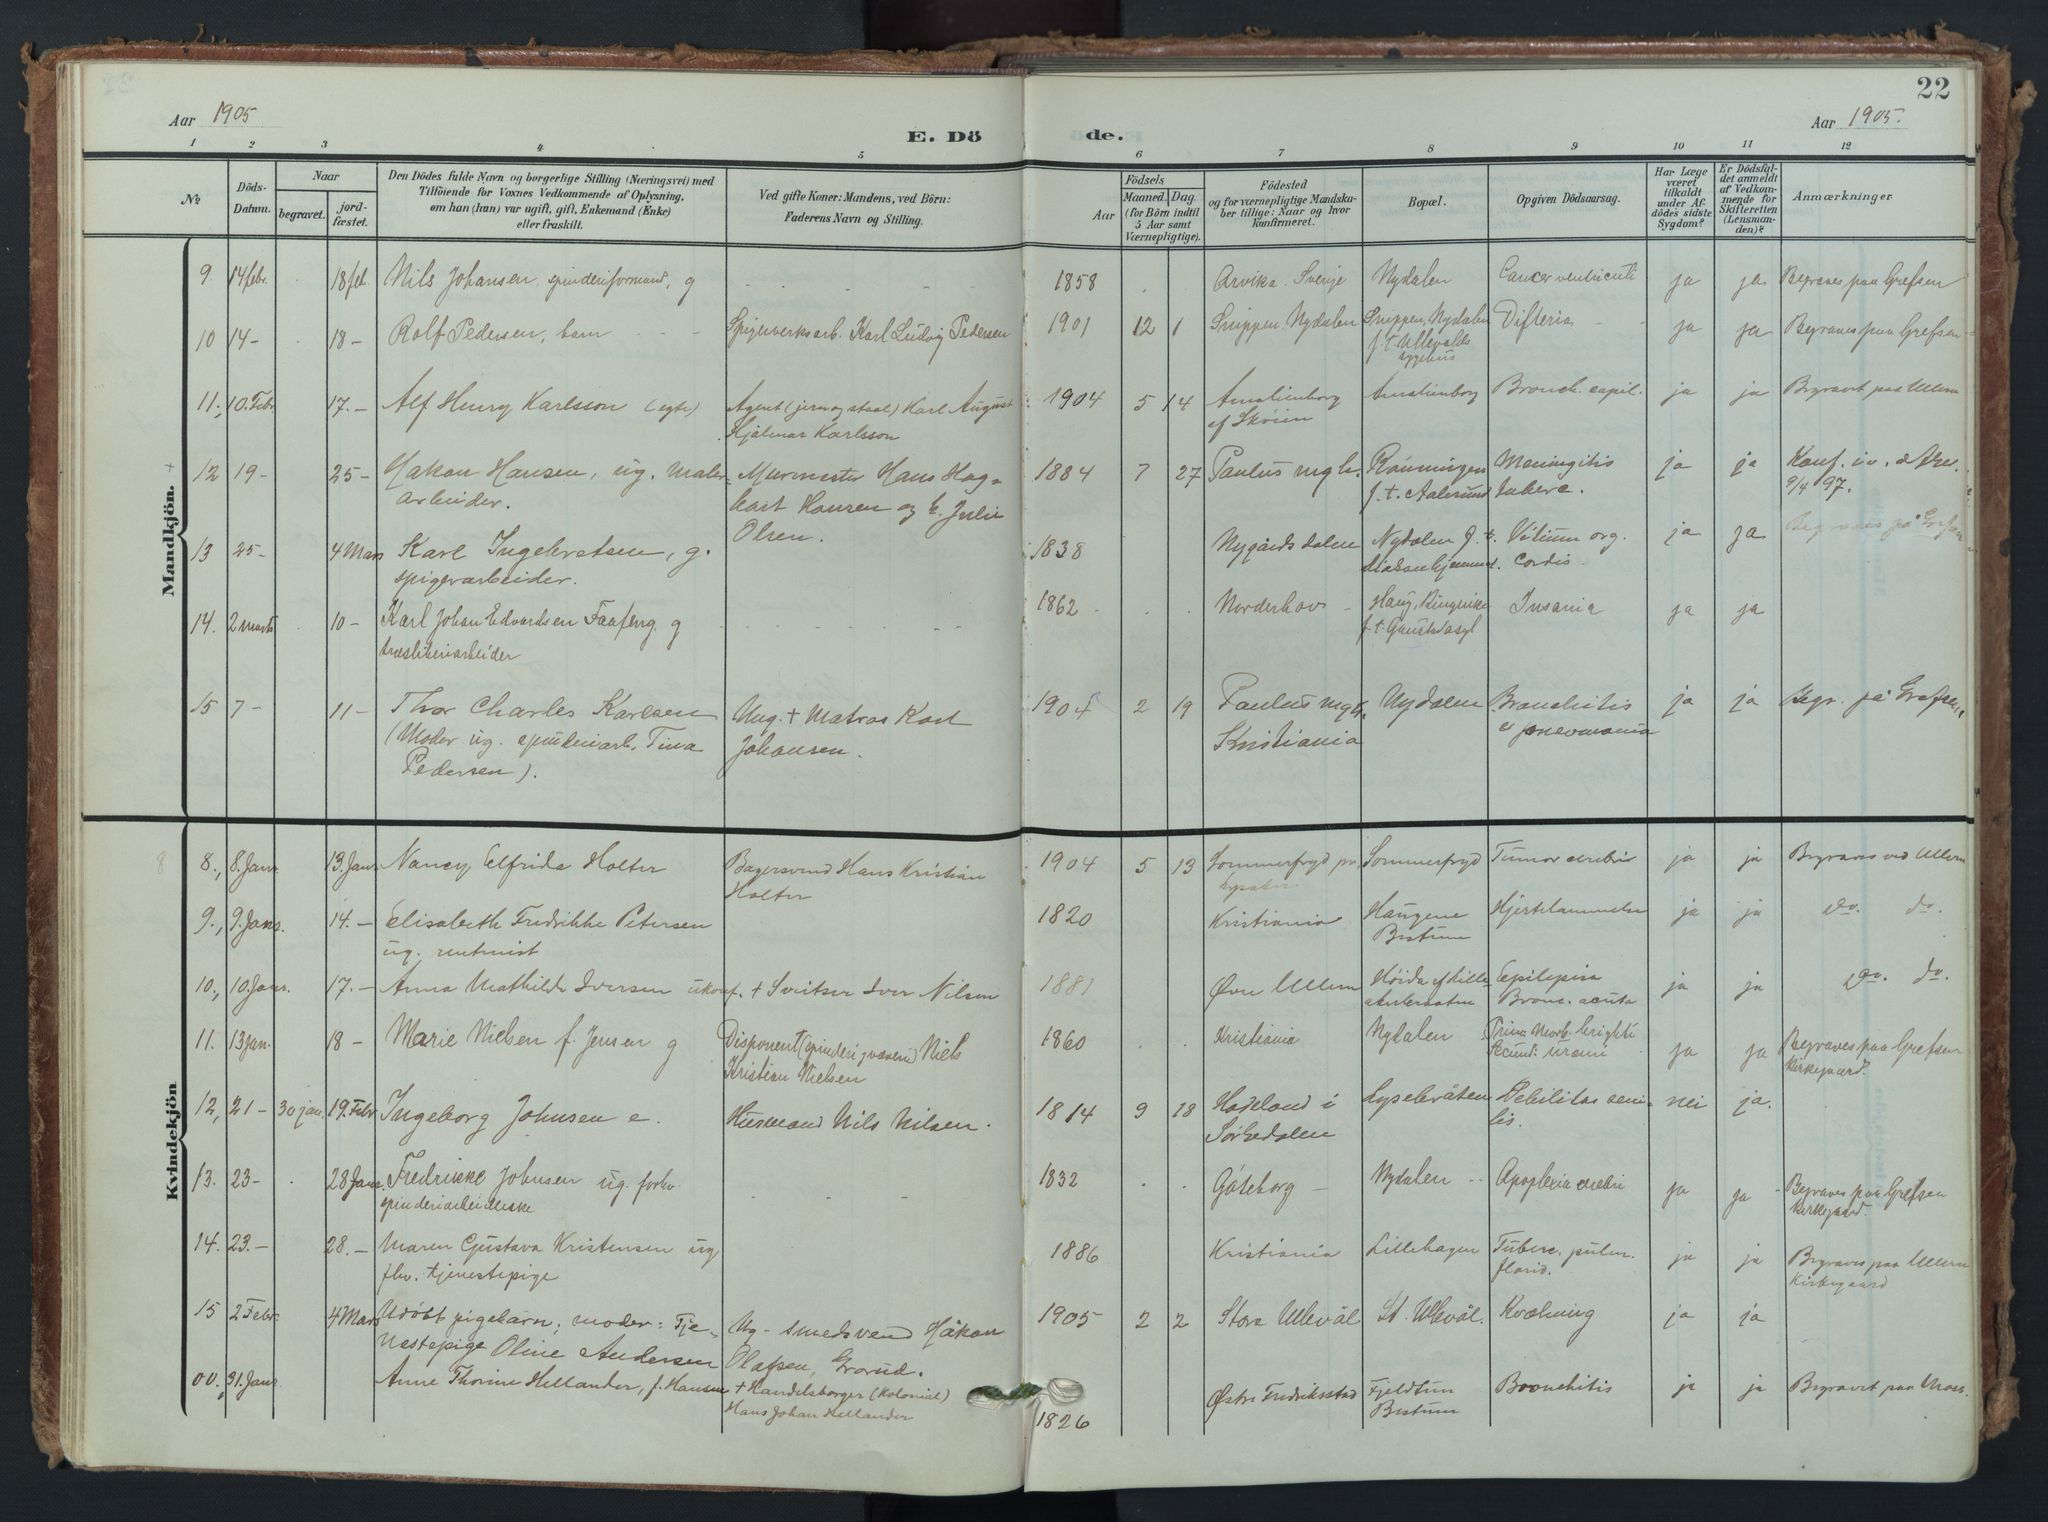 22
Aar 1905
E. Dö
de.
Aar 1905.
1 2 3 4 5 6 7 8 9 10 11 12
No
Döds-
Datum.
Naar
begravet.
jord-
fæstet.
Den Dödes fulde Navn og borgerlige Stilling (Næringsvei) med
Tilföiende for Voxnes Vedkommende af Oplysning,
om han (hun) var ugift, gift, Enkemand (Enke)
eller fraskilt.
Ved gifte Koner: Mandens, ved Börn:
Faderens Navn og Stilling.
Födsels
Aar
Maaned.
Dag.
(for Börn indtil
5 Aar samt
Værnepligtige).
Födested
og for værnepligtige Mandska-
ber tillige: Naar og hvor
konfirmeret.
Bopæl.
Opgiven Dödsaarsag.
Har Læge
været
tilkaldt
under Af-
dödes sidste
Sygdom?
Er Dödsfal-
det anmeldt
af Vedkom-
mende for
Skifteretten
(Lensman-
den)?
Anmærkninger.
Mandkjön.
9. 14 febr. 18 feb. Nils Johansen, spinderiformand, g 1858 Arvika. Sverige Nydalen Cancer ventriculi ja ja Begraves paa Grefsen
10 14- 18- Rolf Pedersen, barn Spigerverksarb. Karl Ludvig Pedersen 1901 12 1 Snippen, Nydalen Snippen, Nydalen Difteria ja ja Begraves paa Grefsen
f. t. Ullevolds
sygehus
11., 10. Febr. 17.- Alf Henry Karlsson (egte) Agent (jern og staal) Karl August 1904 5 14 Amalienborg Amalienborg Bronch. capil. ja ja Begravet paa Ullern
Hjalmar Karlsson
af Skøien
12 19- 25- Hakon Hansen, ug. maler- Murmester Hans Hag- 1884 7 27 Paulus mgh. Rønningen Meningitis ja ja Konf. i v. Aker
arbeider.
bart Hansen og h. Julie
Olsen.
f. t. Aalesund
tuberc.
9/4 97.
13 25- 4 Mars Karl Ingebretsen, g. 1838 Nygårdsdalen Nydalen f. t. Vitium org. ja ja Begraves på Grefsen
spigerarbeider.
cordis.
14. 2 marts 10- Karl Johan Edvardsen Faafeng. g 1862 Norderhov Haug, Ringerike Insania ja ja
træsliberiarbeider
f. t. Gaustadasyl
15 7- 11- Thor Charles Karlsen Ung. + Matros Karl 1904 2 19 Paulus mgh. Nydalen Bronchitis ja ja Begr. på Grefsen
(Moder ug. spinderiarb. Tina
Johansen.
Kristiania
Pedersen).
Kvindekjön
8 8., 8. Janr. 13. Janr. Nancy Elfrida Holter Bagersvend Hans Kristian 1904 5 13 Sommerfryd Sommerfryd Tumor cerebri ja ja Begraves ved Ullern
Holter
9., 9. Janr. 14.- Elisabeth Fredrikke Petersen 1820 Kristiania Haugene Hjertelammelse ja ja do. do.
ug. rentenist
Bestum
10., 10. Janr. 17.- Anna Mathilde Iversen ukonf. + Sveitser Iver Nilsen 1881 Øvre Ullern Epilepsia ja ja do. do.
Bronc. acuta
11. 13 jan. 18- Marie Nielsen f. Jensen g Disponent (spinderi, væveri) Niels 1860 Kristiania Nydalen Prim: Morb. brighti ja ja Begraves paa Grefsen
Kristian Nielsen
Secund: uræmi
Kirkegaard.
12, 21- 30 jan. 19. Febr Ingeborg Johnsen e. Husmand Nils Nilsen. 1814 9 18 Hadeland i Lysebråten Debilitas seni- nei ja.
Sørkedalen
lis.
13. 23- 28 Janr. Fredrikke Johnsen ug. forhv. 1832 Göteborg Nydalen Apoplexia cerebri ja ja Begraves paa Grefsen
spinderiarbeiderske
Kirkegaard.
14. 23.- 28.- Maren Gustava Kristensen ug 1886 Kristiania Lillehagen Tuberc. pulm. ja ja Begraves paa Ullern
fhv. tjenestepige
florid.
Kirkegaard
15 2 Febr. 4 Mars Udöbt pigebarn; moder: Tje- Ug. smedsvend Håkon 1905 2 2 Store Ullevål St. Ullevål. Kvælning ja ja
nestepige Oline Andersen
Olafsen, Grorud.
00. 31. Janr. Anne Thorine Hellander, f. Hansen + Handelsborger (kolonial) Østre Fredriksstad Fjeldtun Bronchitis ja ja Begravet paa Moss.
Hans Johan Hellander
1826
Bestum